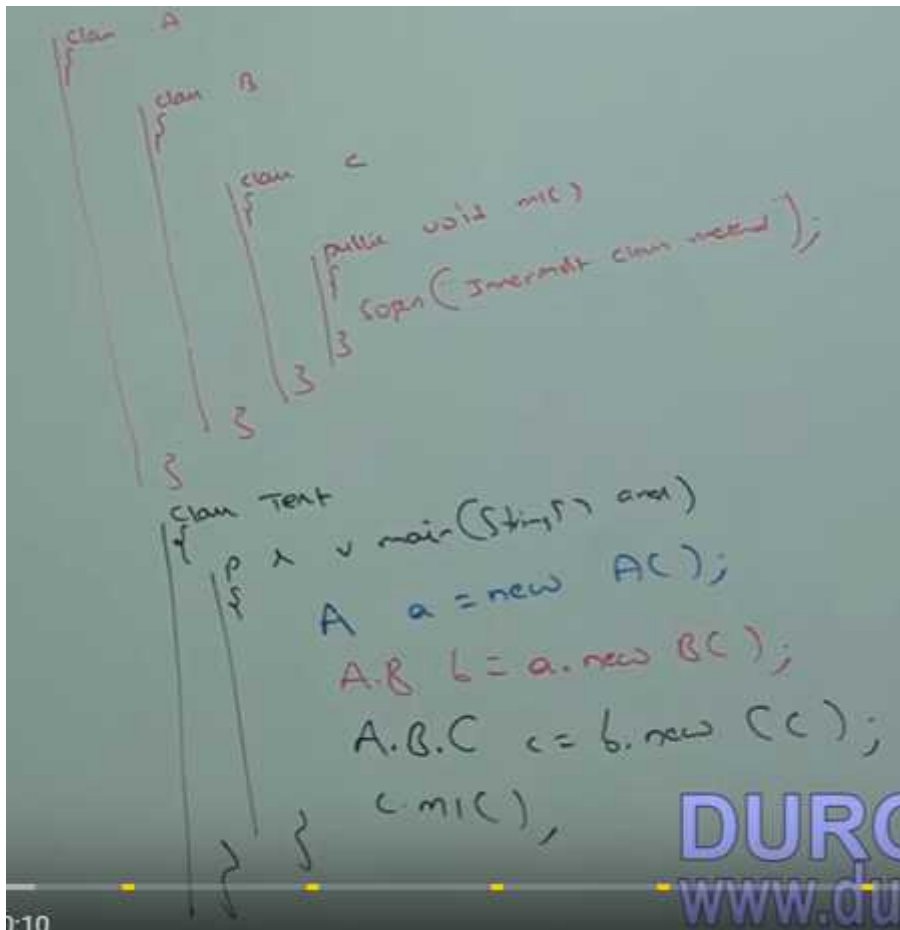 class A
{
class B
{
class C
{
public void m1()
{
Sopln(Innermost class method);
}
}
}
}
class Test
{
p s v main(String[] args)
{
A a = new A();
A.B b = a.new B();
A.B.C c = b.new C();
c.m1();
}
}
DURG
www.du
0:10